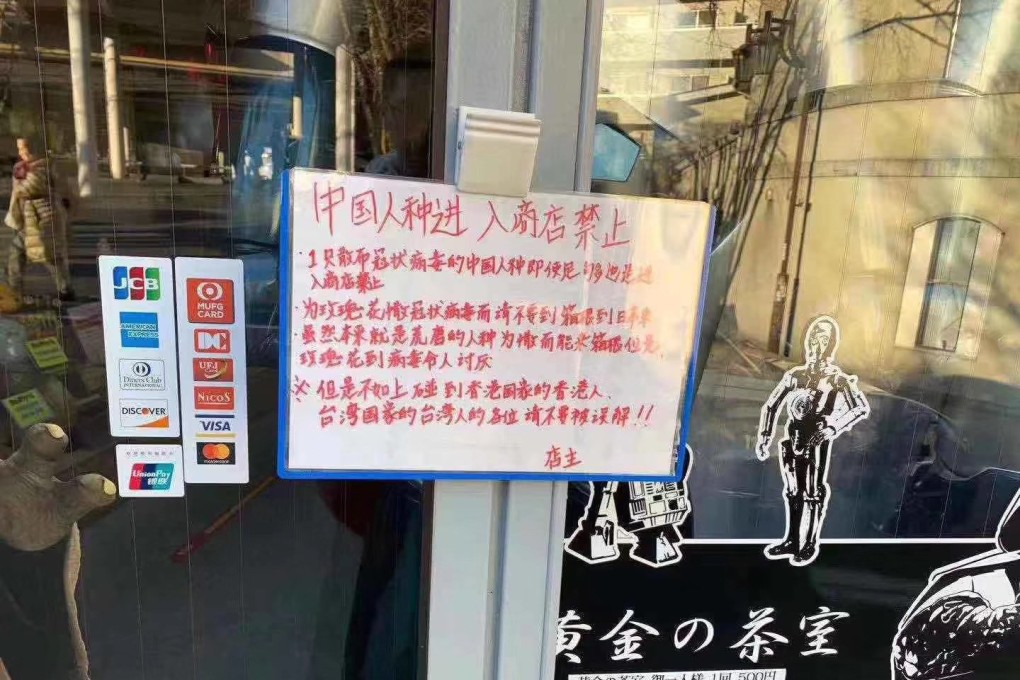 中国人种进入商店禁止
·1只散布冠状病毒的中国人种即使是
入商店禁止
·为玫瑰花撒冠状病毒而请不要到箱根到日本来
·虽然本来就是荒磨的人种为撒而能来箱根但是
玫瑰花到病毒令人讨厌
※但是不如上碰到香港国家的香港人、
台湾国家的台湾人的各位请不要被误解!!
店主
JCB
AMERICAN EXPRESS
Diners Club INTERNATIONAL
DISCOVER
UnionPay
银联
MUFG CARD
DC
UFJ Card
NICOS
VISA
黄金の茶室
黄金の茶室 御一人様 1回 500円